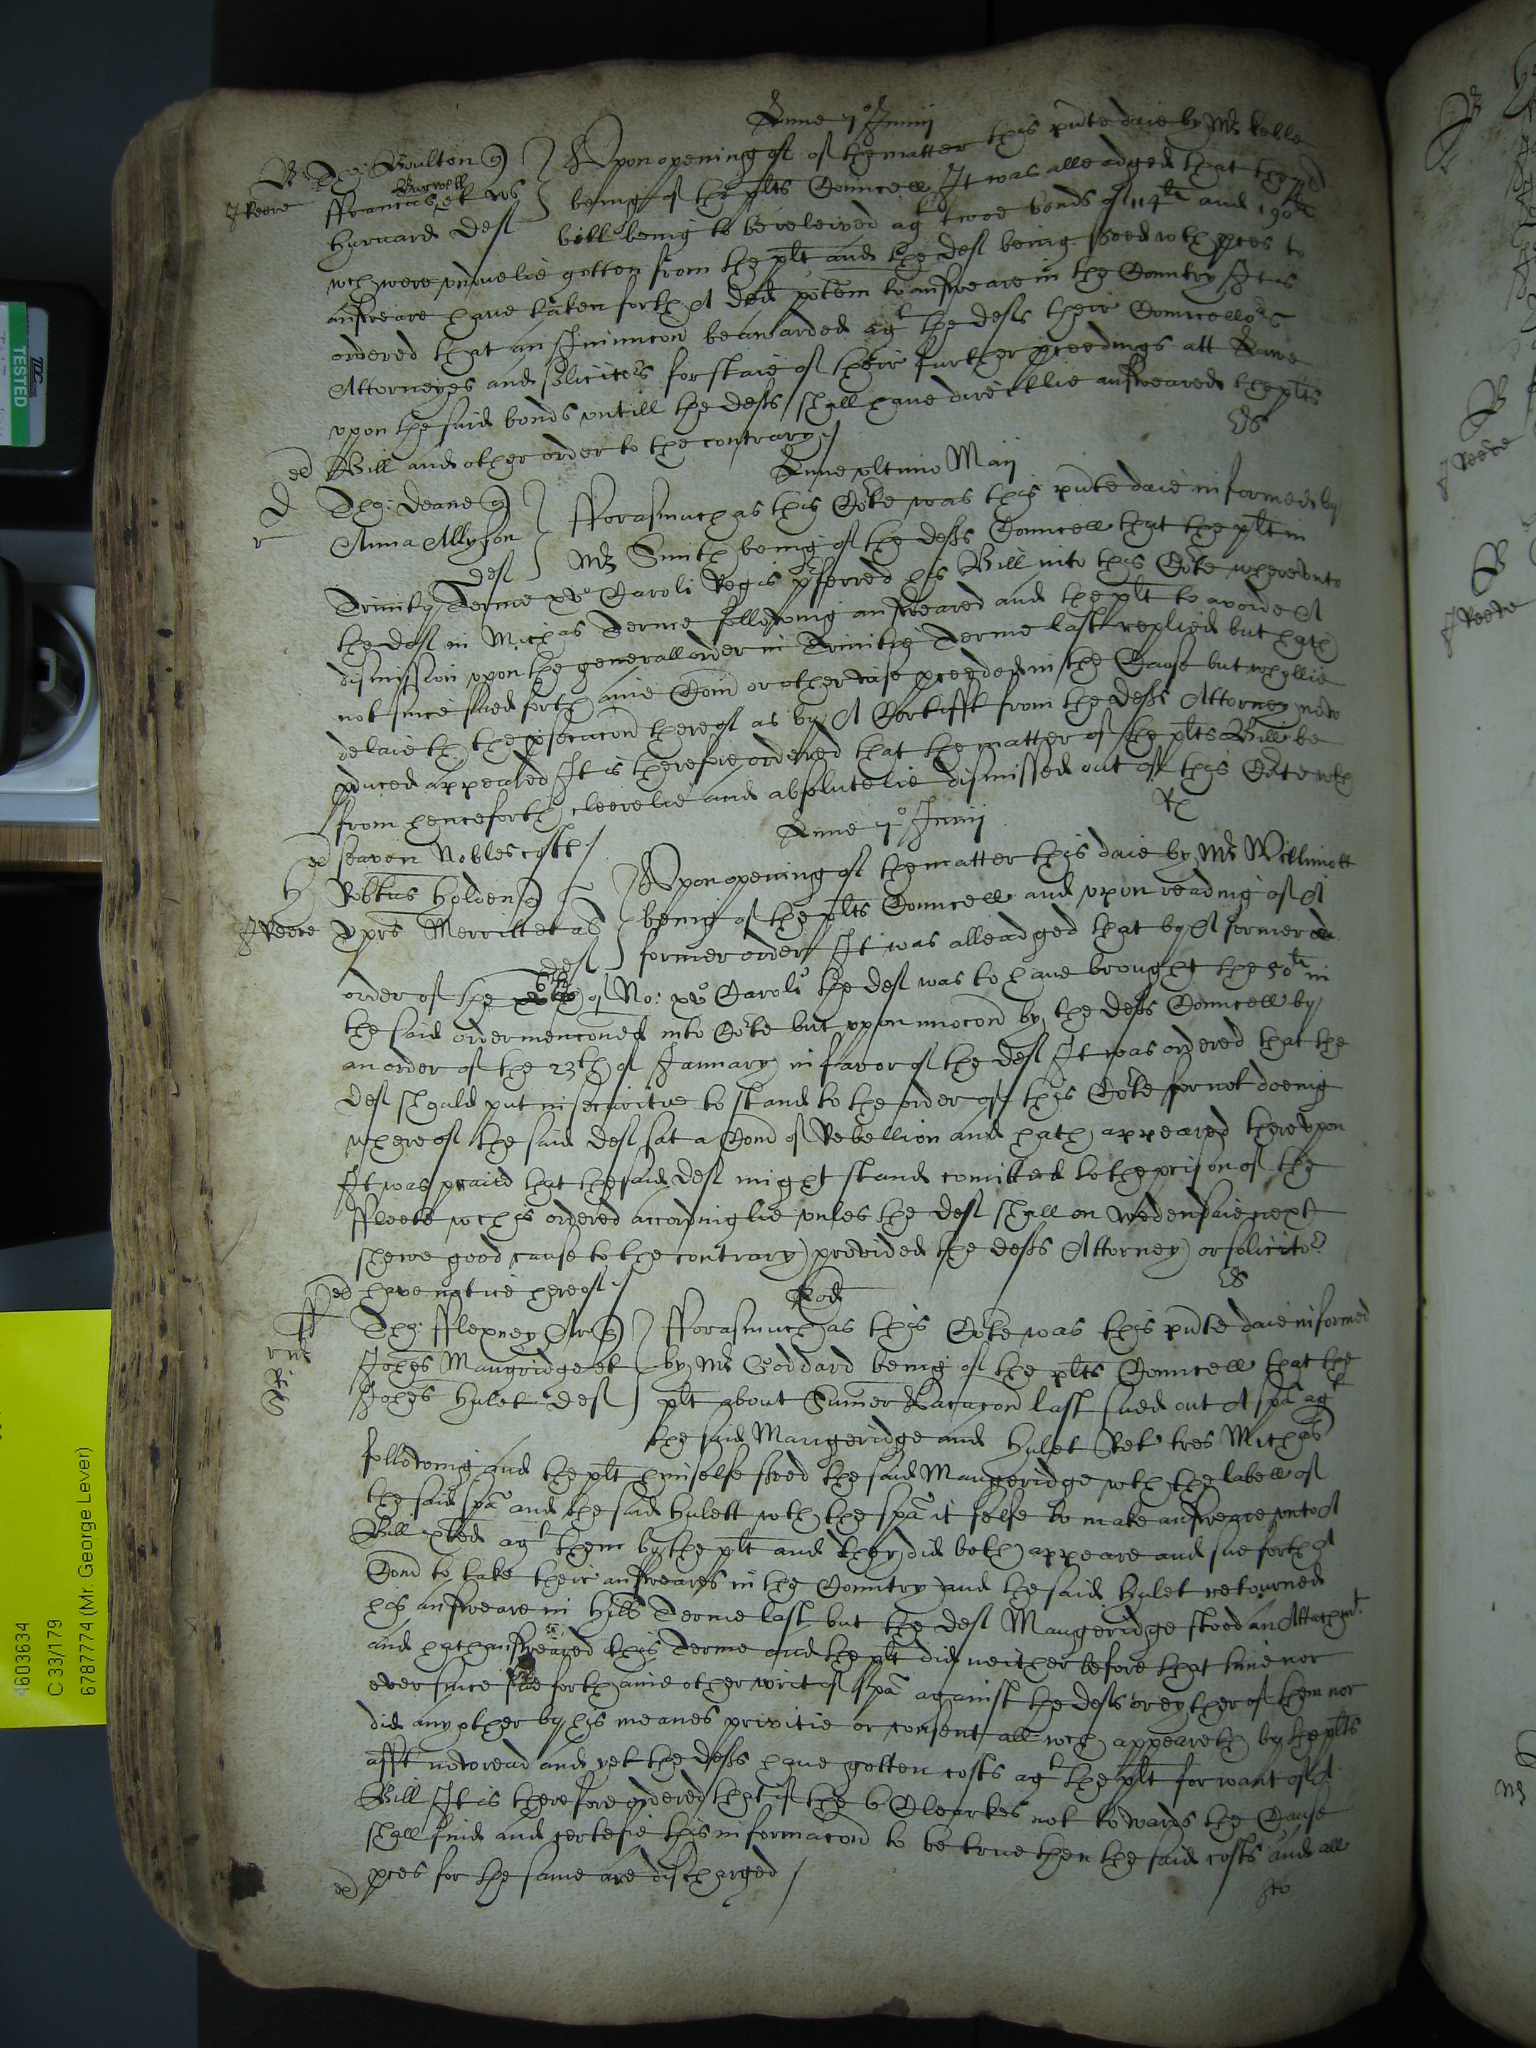 Lune 1o Junij
B Tho: Boulton q
Keere
Francus Burwell et vx
Harnard def
Upon openinge of the matter this pnte daie by Mr Kelle
being of the plts Councell It was alleadged that the
bill being to be releived agt twoe bonds of 114li and 190li
wch were unduelie gotten from the plt and the def being sved wth pces to
answeare have taken forth A ded potem to answeare in the Country It is
ordered that an Iniunccon be awarded agt the defts their Councellors
Attorneyes and soliciters for staie of their further pceedings att Lawe
upon the said bonds untill the defts shall have directlie answeared the plts
Bill and other order to the contrary
ed
Lune ultimo Maij
D
r
Tho: Deane q
Anna Allyson
def
Fforasmuch as this Cote was this pnte daie informed by
Mr Smith being of the defts Councell that the plt in
Trinity Terme xvo Caroli Regis pferred his Bill into this Cote whereunto
the def in Michas Terme following answeared and the plt to avoide A
dismission upon the generall order in Trinitie Terme last replied but hath
not since sued forth anie Comn or otherwise pceeded in the Cause but whollie
delaieth the psecucon thereof as by A Certifft from the defts Attorney now
pduced appeared It is therefore ordered that the matter of the plts Bill be
from henceforth cleerelie and absolutelie dismissed out of this Cote wth
seaven Nobles costs
ed
Lune 1o Junij
H
Keere
Robtus Holden q
Xpofr Merritt et al
def
Upon opening of the matter this daie by Mr Willmott
being of the plts Councell and upon reading of A
former order It was alleadged that by A former
order of the of No: xvo Caroli the def was to have brought the 50li in
the said order menconed into Cote but upon mocon by the defts Councell by
an order of the 23th of January in favor of the def It was ordered that the
def should put in securitie to stand to the order of this Cote for not doeing
whereof the said def sat a Comn of Rebellion and hath appeared thereupon
It was praied that the said def might stand comitted to the prison of the
Fleete wch is ordered accordinglie unles the def shall on Wedensdaie next
shewe good cause to the contrary provided the defts Attorney or solicitor
have notice hereof
ed
Eod
ff
Tho: Fflexney Ar q
Johes Maugridge et
Johes Hulet def
Fforasmuch as this Cote was this pnte daie informed
by Mr Goddard being of the plts Councell that the
plt about Sumer Vacacon last sued out A spa agt
the said Maugeridge and Hulet Ret' tres Michas
following and the plt himselfe sved the said Maugeridge wth the labell of
the said spa and the said Hulett wth the spa it selfe to make answeare unto A
Bill exted agt them by the plt and they did both appeare and sue forth A
Comn to take their answeares in the Country and the said Hulet retourned
his answeare in Hill Terme last but the def Maugeridge stood an Attachmt
and hath answeared this Terme and the plt did neither before that time nor
ever since sue forth anie other writ of spa against the defts or eyther of them nor
did any other by his meanes privitie or consent all wch appeareth by the plts
afft now read and yet the defts have gotten costs agt the plt for want of A
Bill It is therefore ordered that if the 6 Clearkes not towards the Cause
shall find and certefie this informacon to be true then the said costs and all
pces for the same are discharged
ed
TESTED
4603634
C 33/179
6787774 (Mr. George Lever)